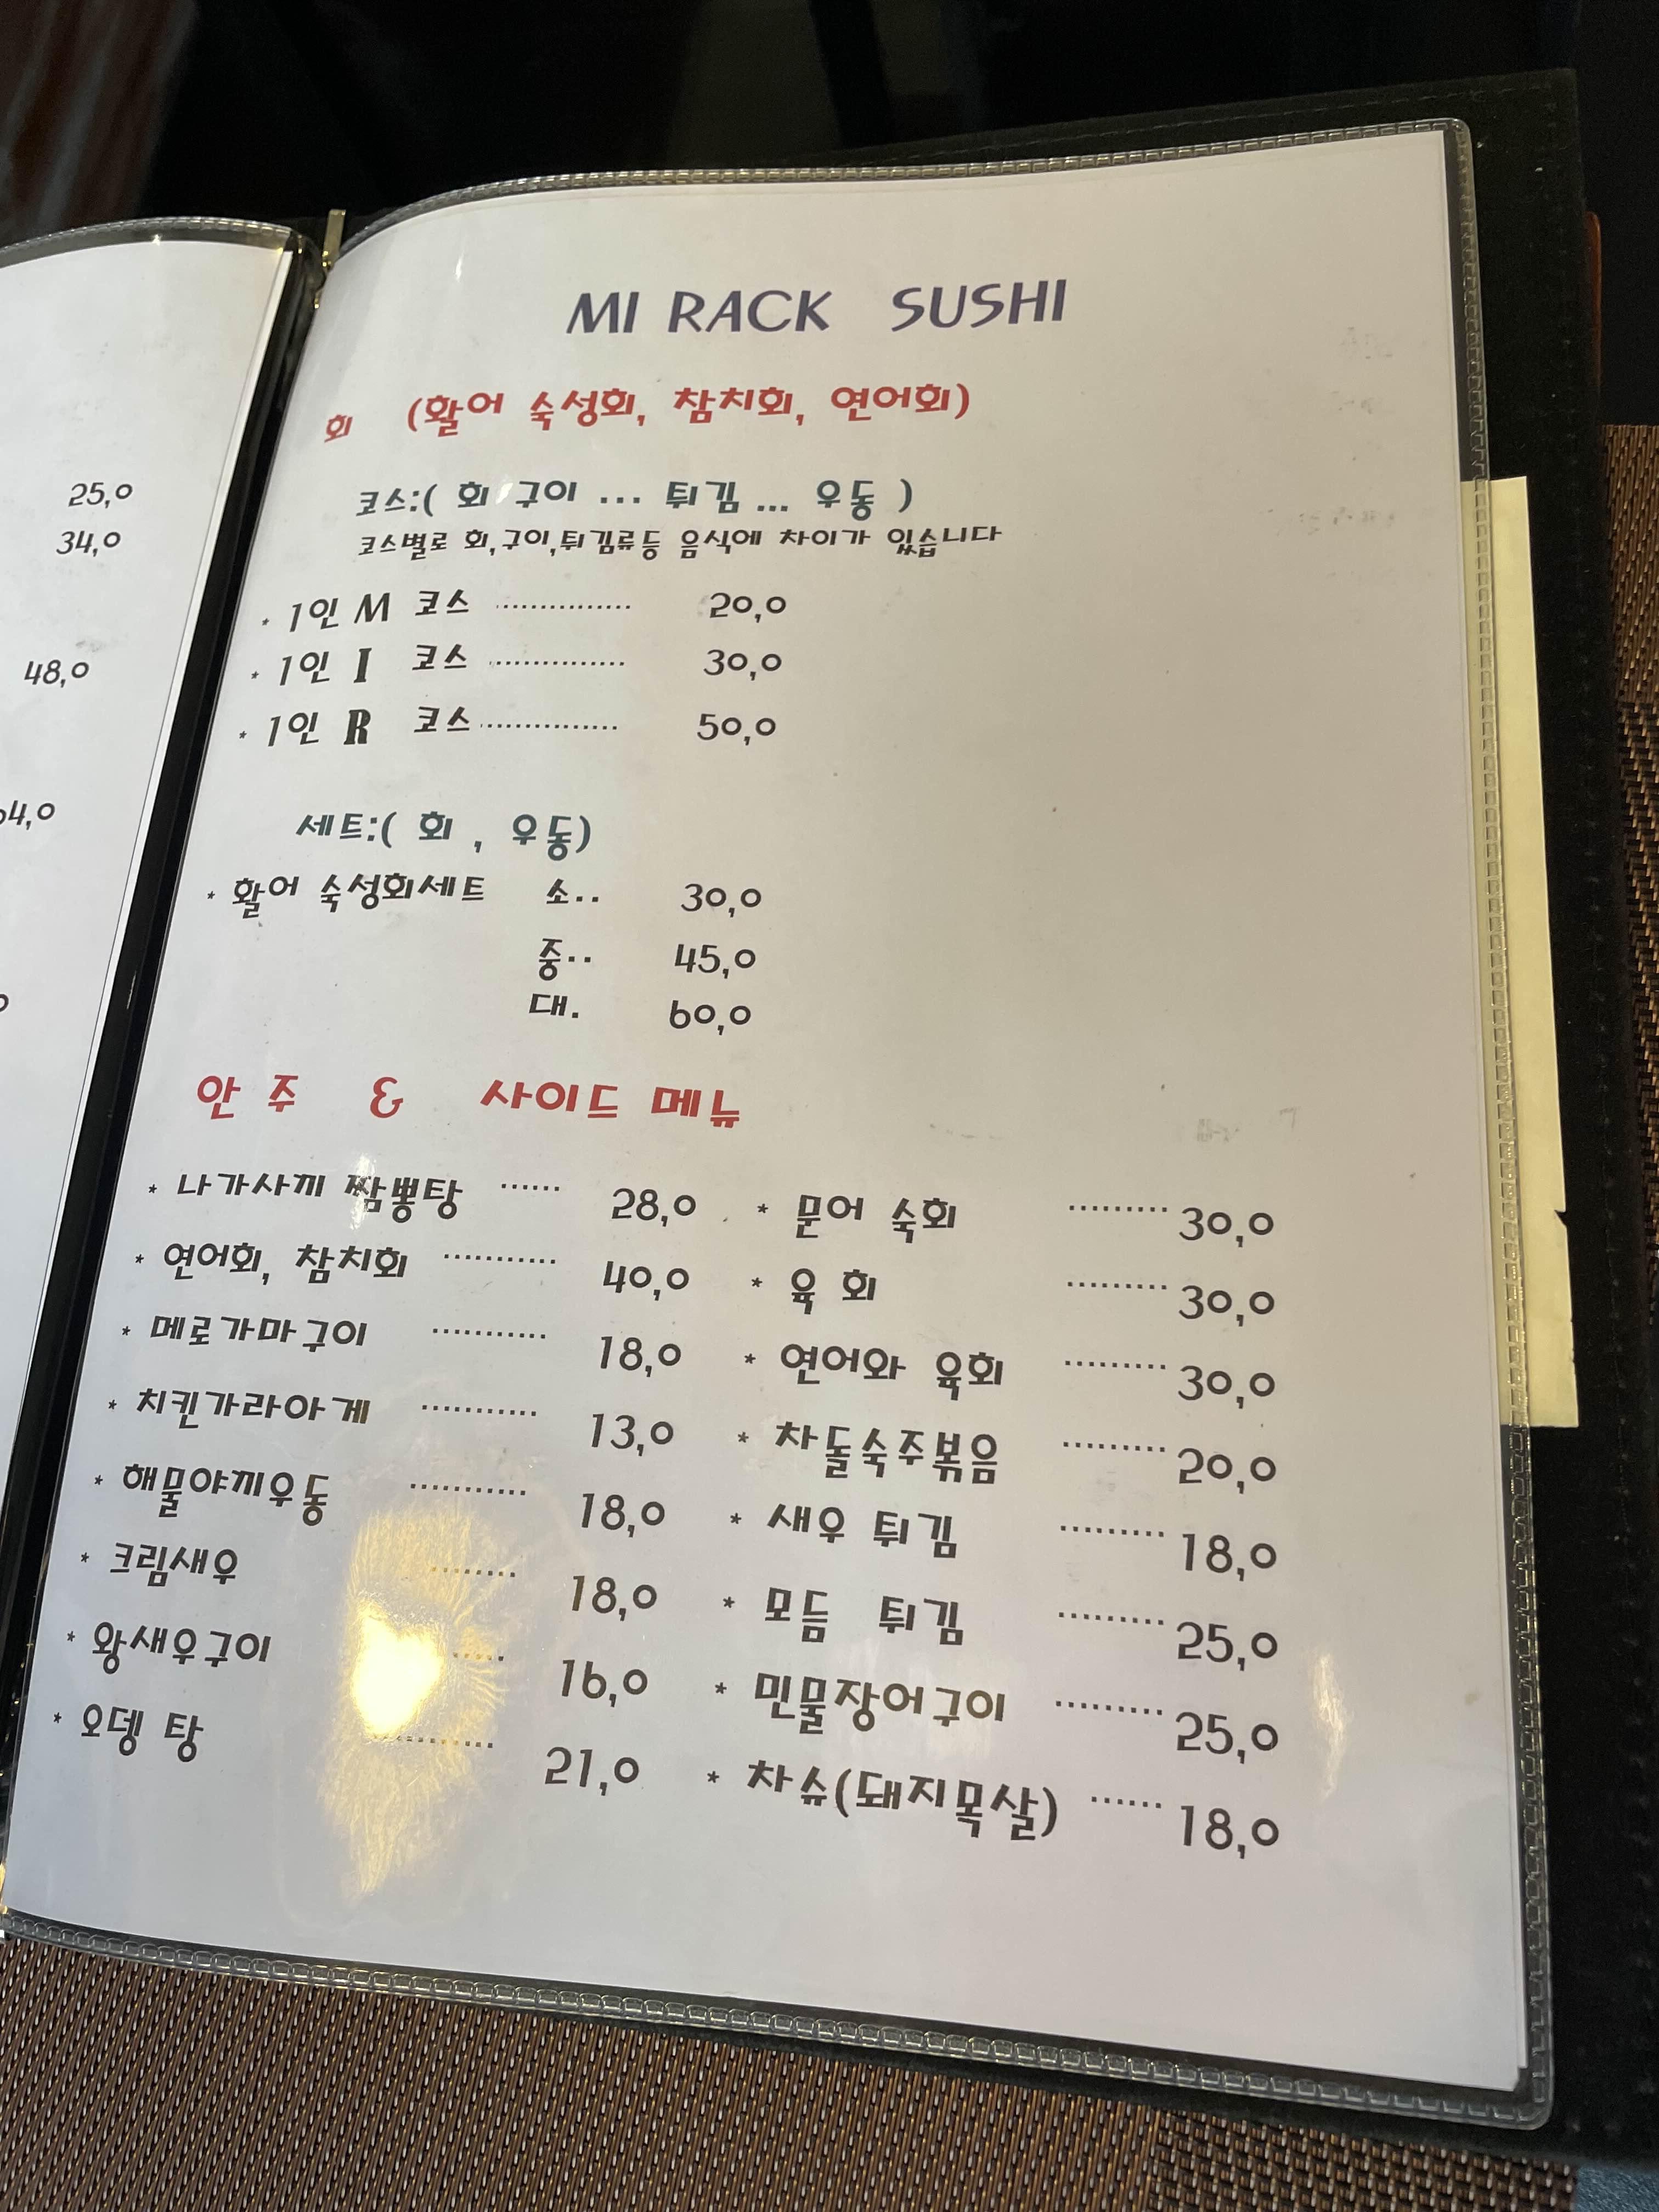 25,0
34,0
48,0
4,0
MI RACK SUSHI
회 (활어 숙성회, 참치회, 연어회)
코스:( 회 구이 ... 튀김 ... 우동 )
코스별로 회,구이,튀김류등 음식에 차이가 있습니다
* 1인 M 코스 ............... 20,0
* 1인 I 코스 ............... 30,0
* 1인 R 코스 ............... 50,0
세트:( 회 , 우동)
* 활어 숙성회세트 소.. 30,0
중.. 45,0
대. 60,0
안 주 & 사이드 메뉴
* 나가사끼 짬뽕탕 ...... 28,0 * 문어 숙회 ......... 30,0
* 연어회, 참치회 ........... 40,0 * 육 회 ......... 30,0
* 메로가마구이 ........... 18,0 * 연어와 육회 ......... 30,0
* 치킨가라아게 ........... 13,0 * 차돌숙주볶음 ......... 20,0
* 해물야끼우동 ........... 18,0 * 새우 튀김 ......... 18,0
* 크림새우 ........ 18,0 * 모듬 튀김 ......... 25,0
* 왕새우구이 ..... 16,0 * 민물장어구이 ......... 25,0
* 오뎅 탕 ......... 21,0 * 차슈(돼지목살) ...... 18,0